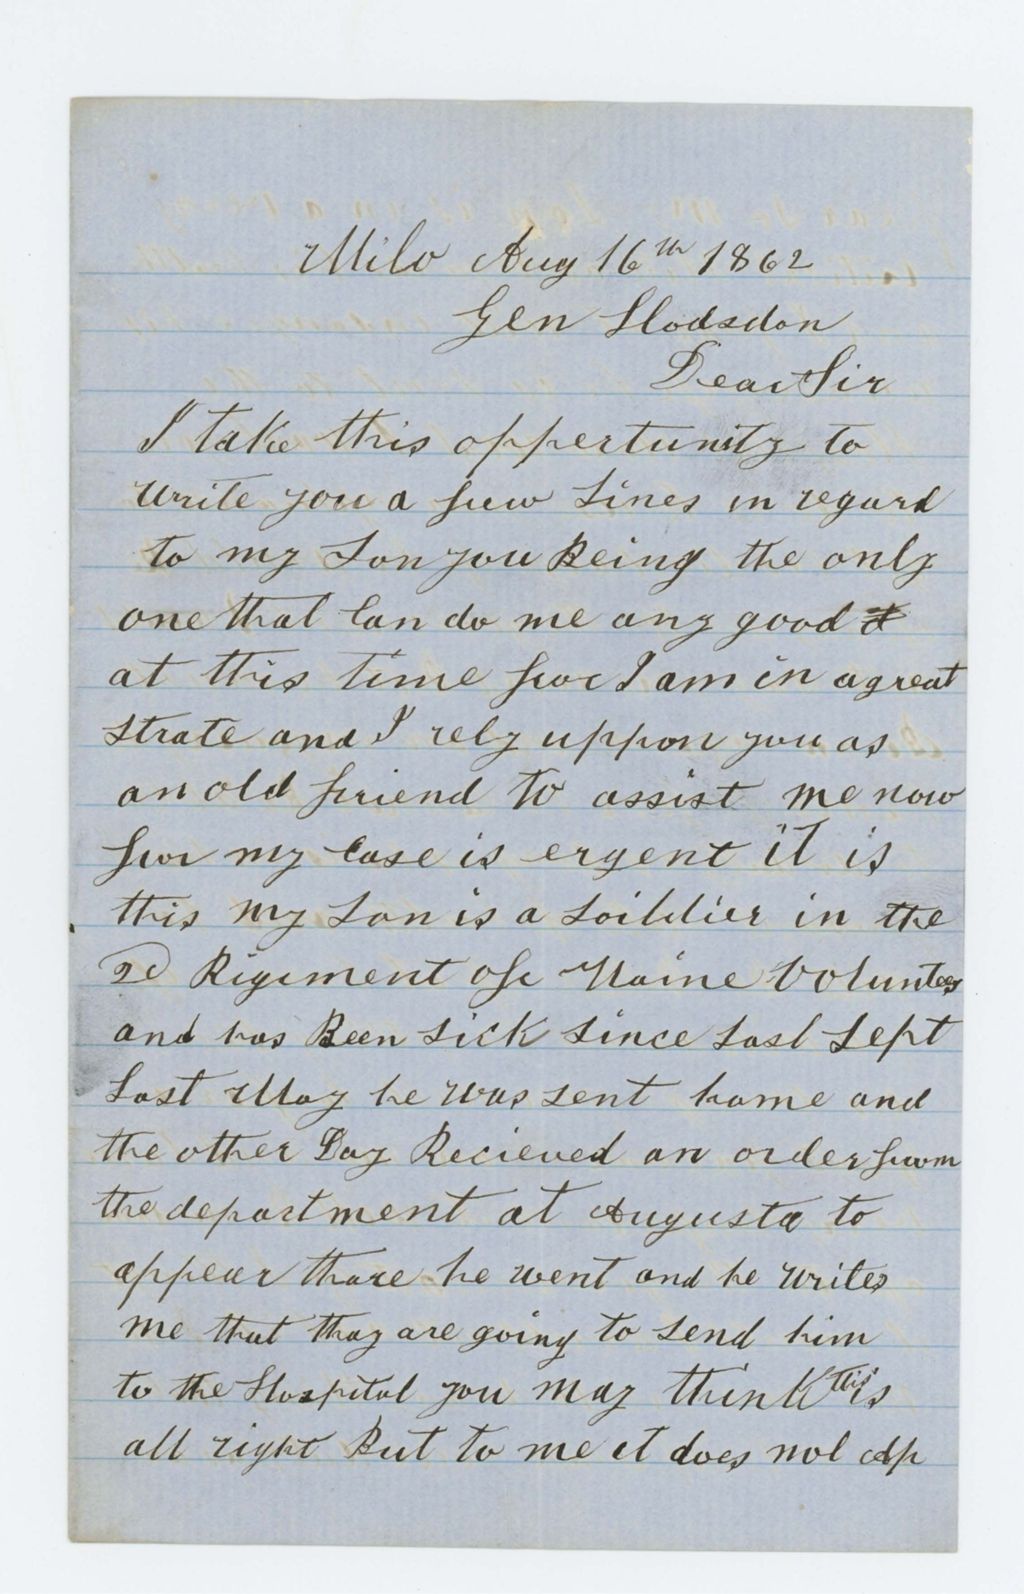 Milo Aug 16th 1862
Gen Hodsdon
Dear Sir
I take this oppertunity to
write you a few lines in regard
to my Son you Being the only
one that Can do me any good
at this time for I am in a great
strate and I rely uppon you as
an old friend to assist me now
for my Case is ergent it is
this my Son is a Soildier in the
2d Rigiment of Maine Volunteers
and has Been Sick Since Last Sept
Last May he was sent home and
the other Day Recieved an order from
the department at Augusta to
appear thare he went and he writes
me that thay are going to send him
to the Hospital you may think this is
all right But to me it does not ap